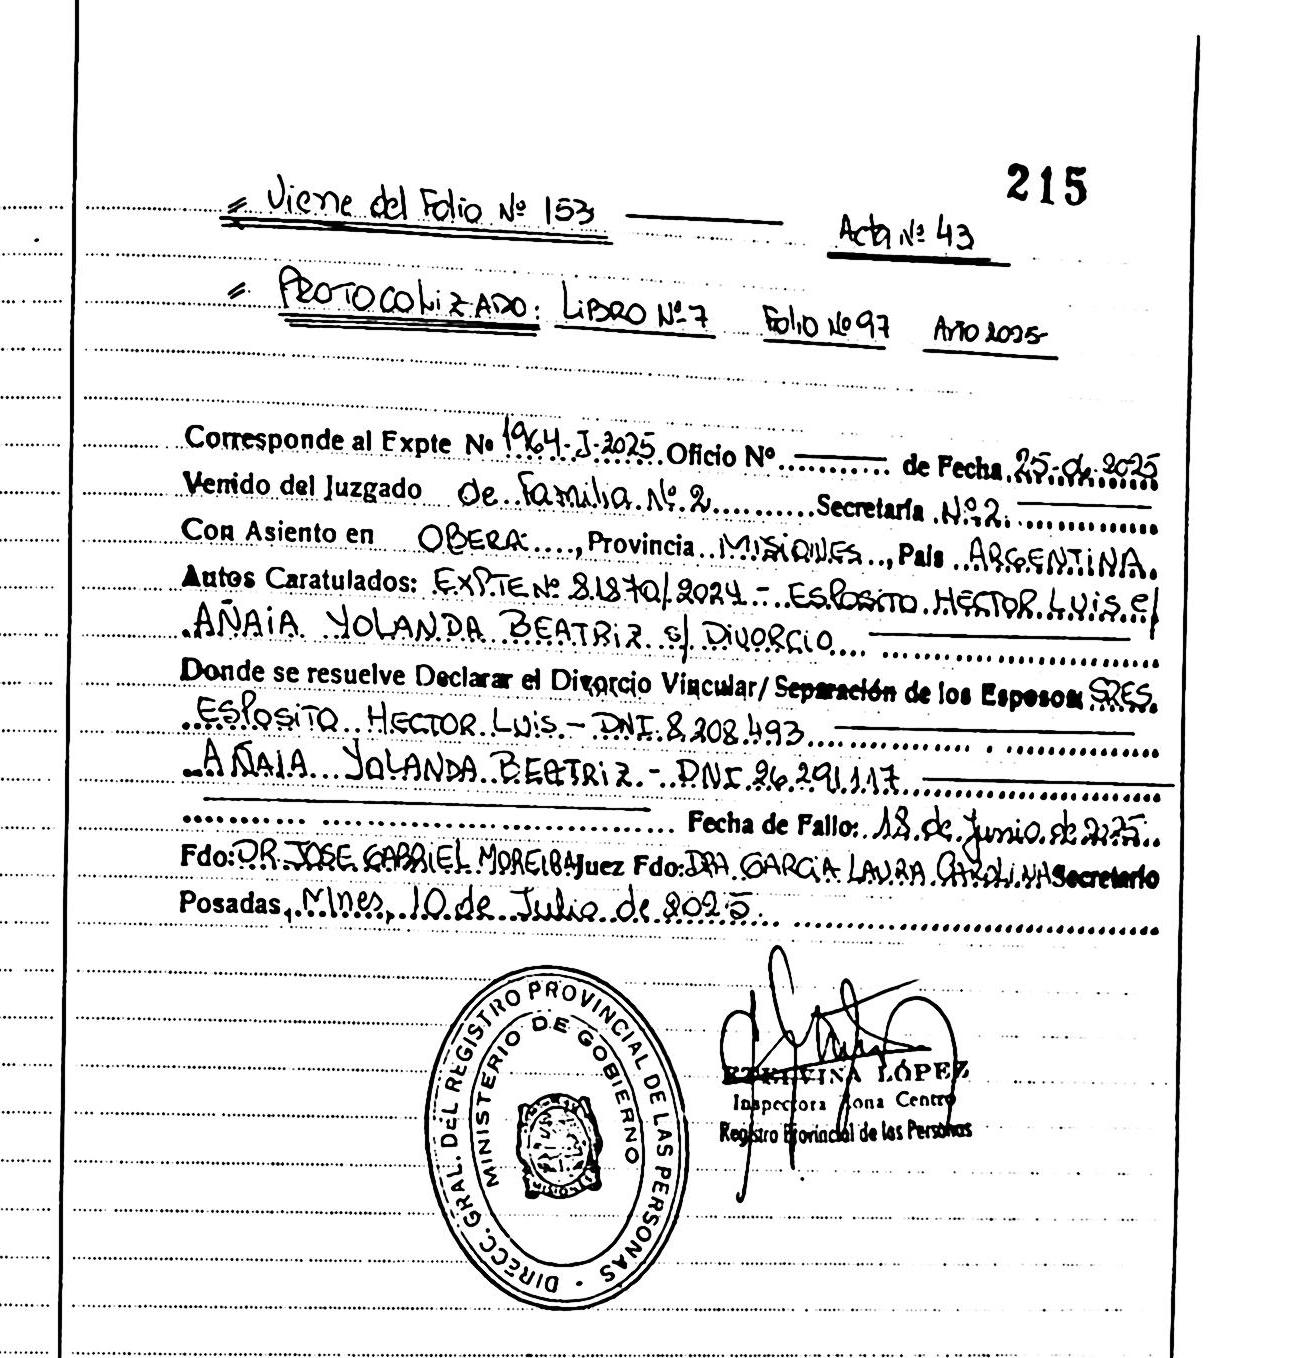 215
Viene del Folio Nº 153 Acta Nº 43
PROTOCOLIZADO: LIBRO Nº 7 Folio Nº 97 Año 2025
Corresponde al Expte Nº 1964-J-2025 Oficio Nº de Fecha 25-06-2025
Venido del Juzgado de Familia Nº 2 Secretaría Nº 2
Con Asiento en OBERA, Provincia MISIONES, País ARGENTINA.
Autos Caratulados: EXPTE Nº 81870/2024 - ESPOSITO HECTOR LUIS c/
AÑAIA YOLANDA BEATRIZ s/ DIVORCIO
Donde se resuelve Declarar el Divorcio Vincular/ Separación de los Esposos SRES.
ESPOSITO HECTOR LUIS - DNI. 8.208.493
AÑAIA YOLANDA BEATRIZ - DNI 26.291.117
Fecha de Fallo: 18 de Junio de 2025
Fdo: DR. JOSE GABRIEL MOREIRA Juez Fdo: DRA. GARCIA LAURA CAROLINA Secretario
Posadas, Mnes, 10 de Julio de 2025.
DIRECC. GRAL. DEL REGISTRO PROVINCIAL DE LAS PERSONAS
MINISTERIO DE GOBIERNO
LÓPEZ
Inspectora Zona Centro
Registro Provincial de las Personas